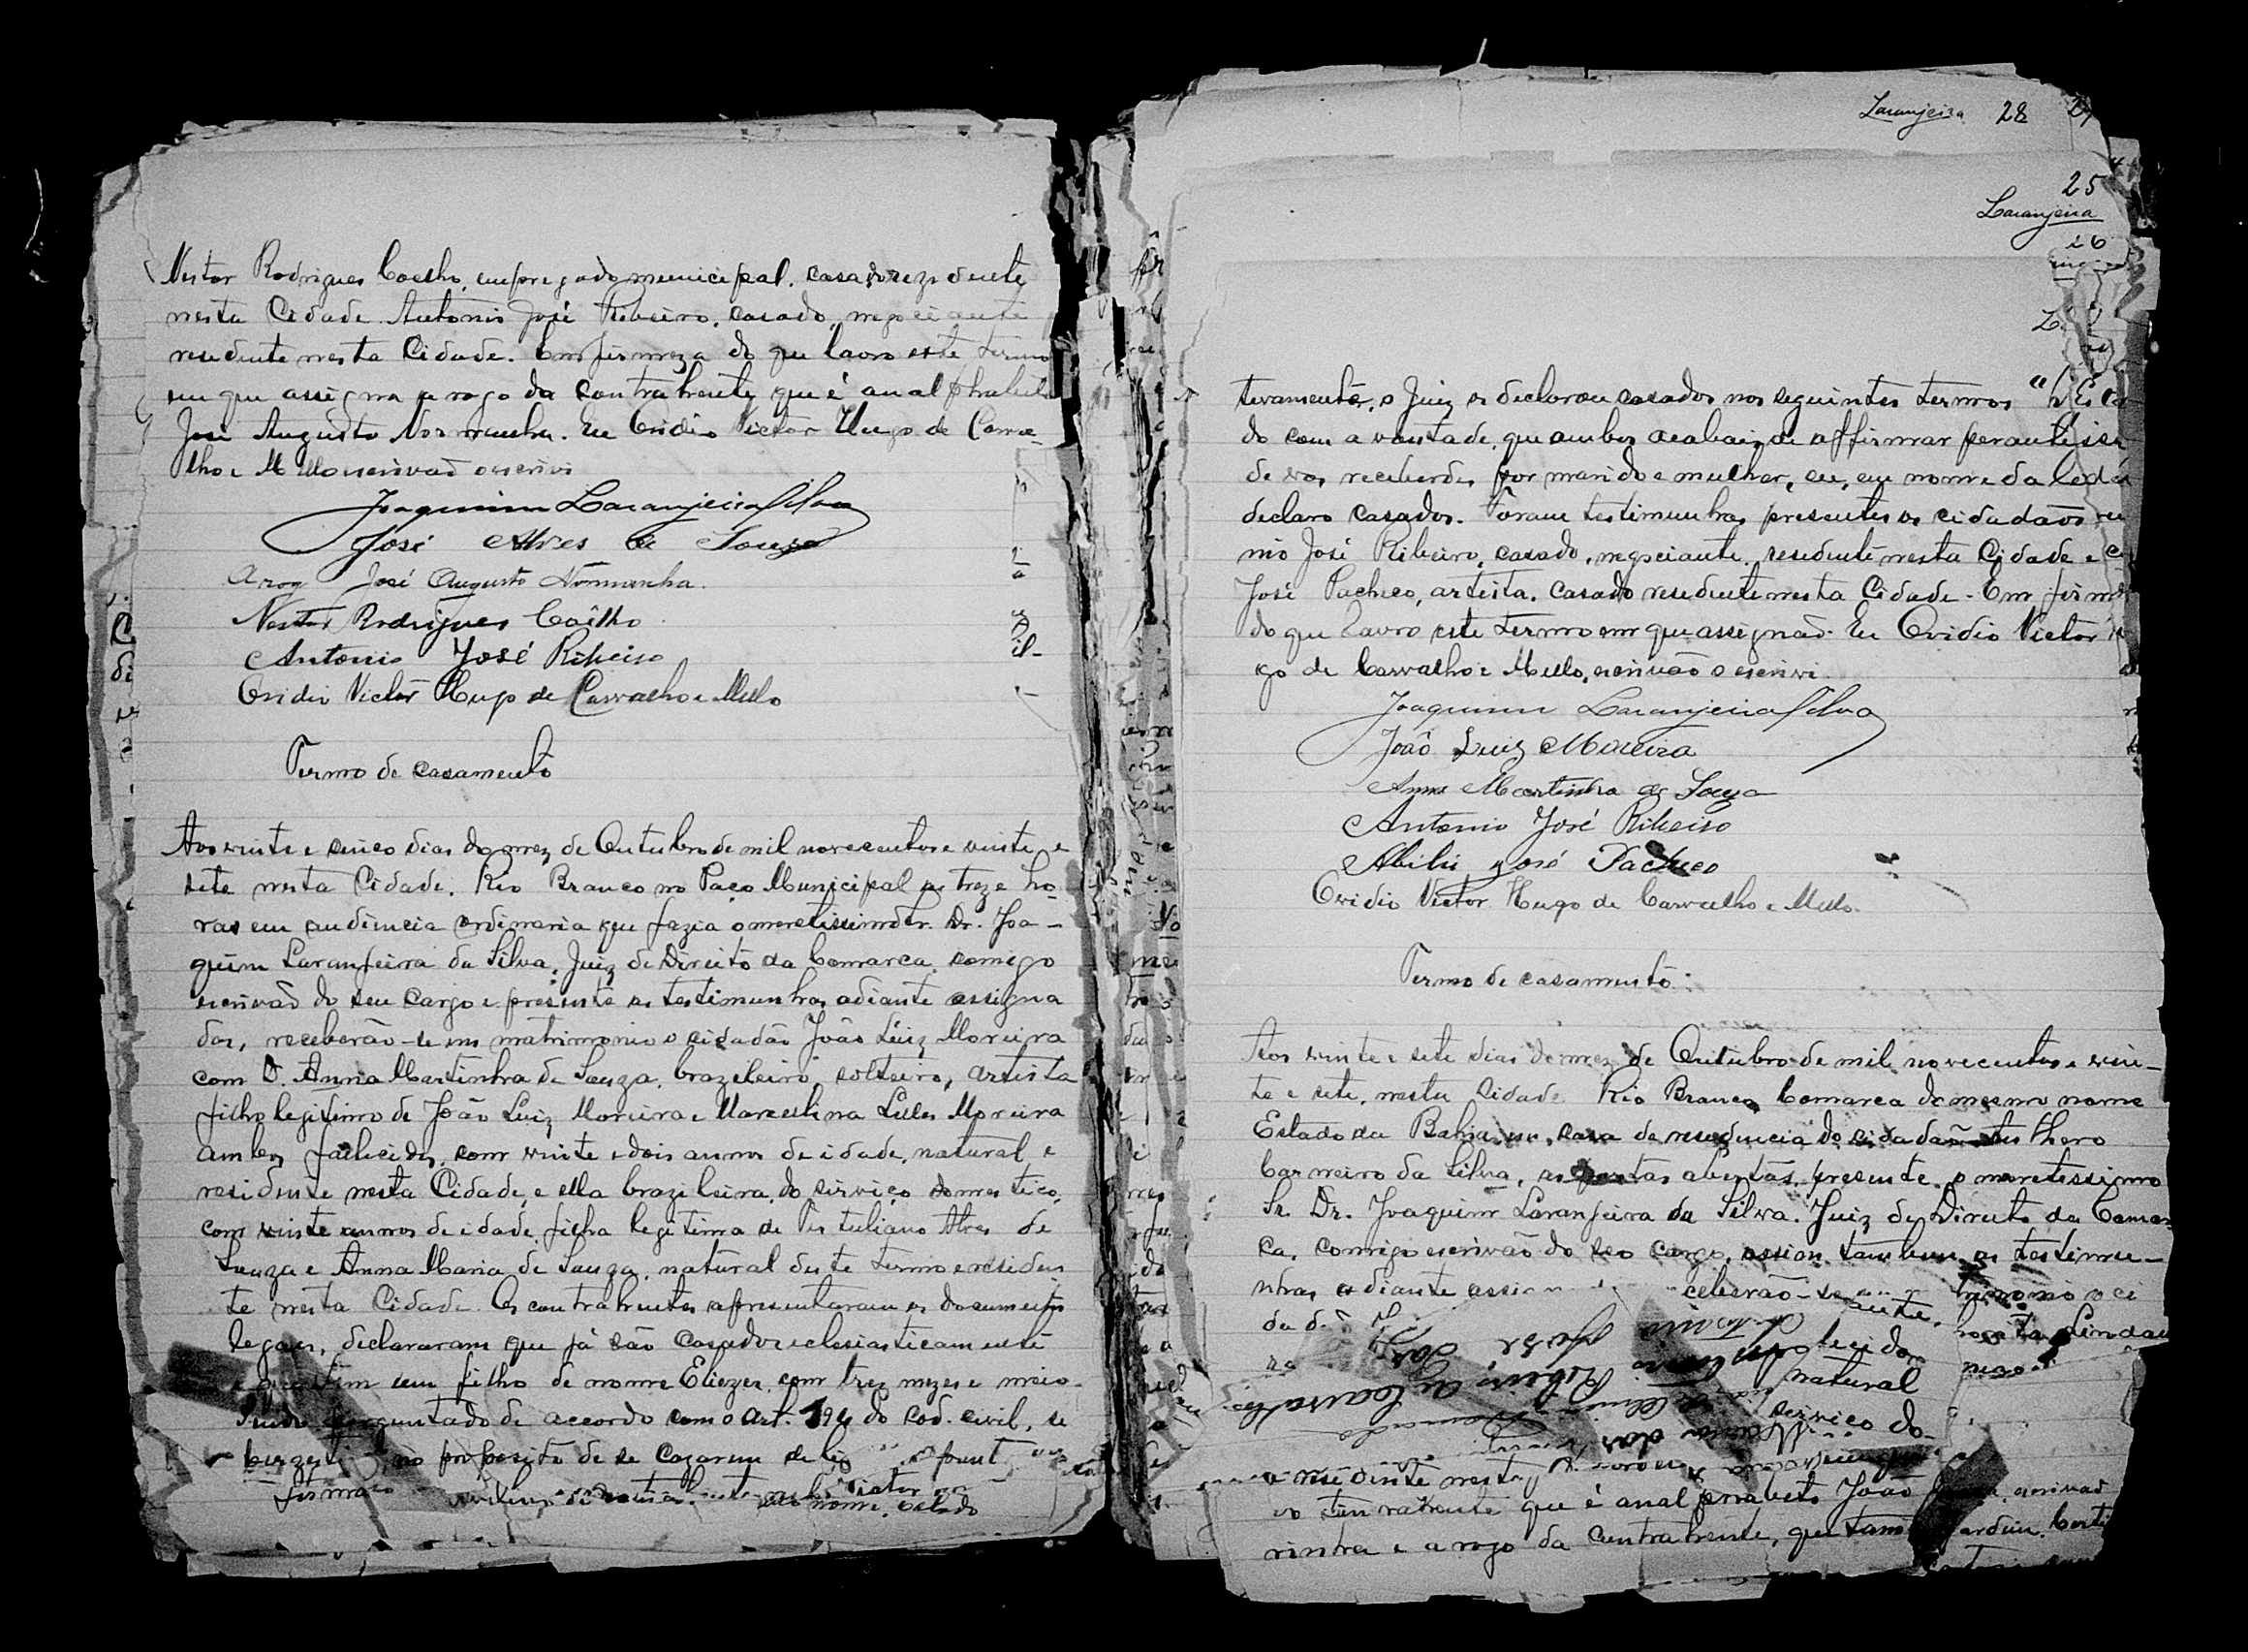 Nestor Rodrigues Coelho, empregado municipal. casado rezidente
nesta Cidade. Antonio José Ribeiro, casado, negociante
residente nesta Cidade. Em firmeza do que lavro este termo
em que assigna a rogo da contrahente que é analphabeta
José Augusto Normanha. Eu Ovidio Victor Hugo de Carva-
lho e Mello escrivaõ o escrivi
Joaquim Laranjeira Silva
José Alves de Souza
Arog José Augusto Normanha.
Nestor Rodrigues Coêlho
Antonio José Ribeiro
Ovidio Victor Hugo de Carvalho e Mello
Termo de casamento
Aos vinte e cinco dias do mez de Outubro de mil novecentos e vinte e
sete nesta Cidade. Rio Branco no Paço Municipal as treze ho-
ras em audiencia ordinaria que fazia o meretissimo Dr. Joa-
quim Laranjeira da Silva, Juiz de Direito da Comarca, comigo
escrivaõ do seu cargo e presente as testimunhas adiante assigna
das, receberão-se em matrimonio o cidadão João Luiz Moreira
com D. Anna Martinha de Souza, brazileiro, solteiro, artista
filho legitimo de João Luiz Moreira e Marcelina Moreira
ambos fallecidos, com vinte e dois annos de idade, natural e
residente nesta Cidade, e ella brazileira, do serviço domestico,
com vinte annos de idade, filha legitima de Tertuliano Alves de
Souza e Anna Maria de Souza, natural deste termo e residen
te nesta Cidade. Os contrahentes apresentaram os documentos
legaes, declararam que já são casados eclesiasticamente
um filho de nome Eliezer, com tres mezes e meio.
perguntado de accordo com o art. 194 do cod. civil, se
no proposito de se cazarem
nome, estado
Laranjeira 28
25
Laranjeira
26
tivamente, o Juiz os declarou casados nos seguintes termos
do com a vontade, que ambos acabais de affirmar perante
de vos receberdes por marido e mulher, eu, em nome da
declaro casados. Foram testimunhas presentes os cidadaõs
nio José Ribeiro, casado, negociante, residente nesta Cidade e
José Pacheco, artista, casado residente nesta Cidade. Em
do que lavro este termo em que assignaõ. Eu Ovidio Victor
go de Carvalho e Mello, escrivão o escrivi.
Joaquim Laranjeira Silva
João Luiz Moreira
Anna Martinha de Souza
Antonio José Ribeiro
Abilio José Pacheco
Ovidio Victor Hugo de Carvalho e Mello.
Termo de casamento:
Aos vinte e sete dias do mez de Outubro de mil novecentos e vin-
te e sete, nesta Cidade Rio Branco Comarca do mesmo nome
Estado da Bahia, em casa de residencia do cidadaõ
Carneiro da Silva, as portas abertas, presente o meretissimo
Sr. Dr. Joaquim Laranjeira da Silva. Juiz de Direito da Comar
ca, comigo escrivão do seo cargo, assim tambem as testimu-
nhas adiante
natural
serviço do-
residente nesta
que é analphabeto João
e a rogo da contrahente, que